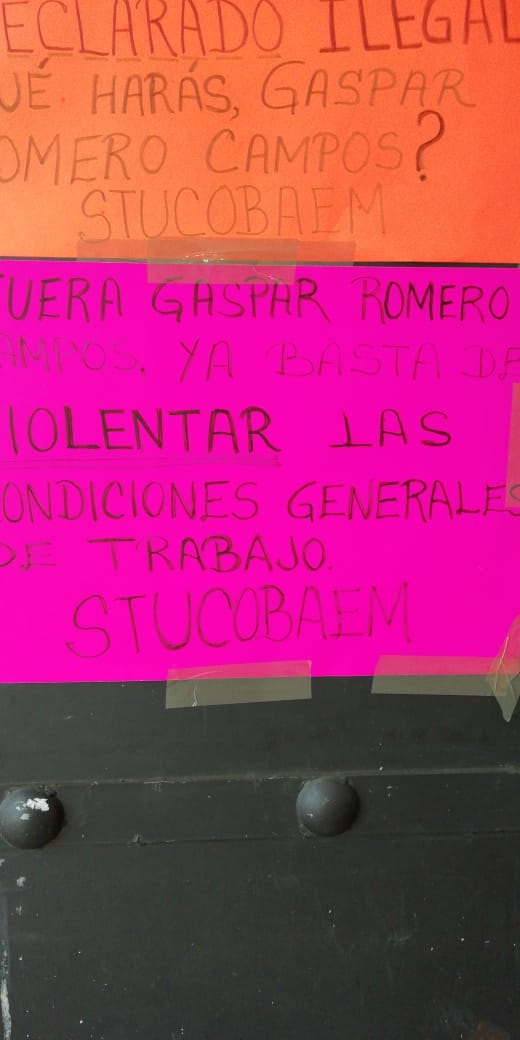 ECLARADO ILEGAL
UÉ HARÁS, GASPAR
OMERO CAMPOS?
STUCOBAEM
FUERA GASPAR ROMERO
AMPOS, YA BASTA DE
VIOLENTAR LAS
CONDICIONES GENERALES
DE TRABAJO.
STUCOBAEM